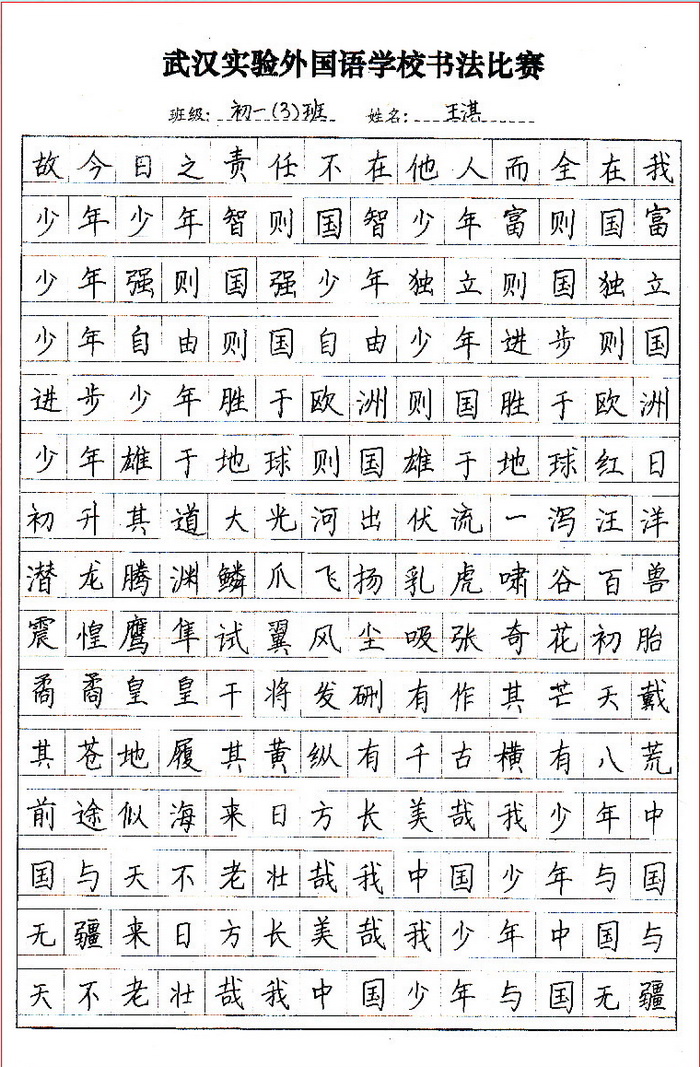 武汉实验外国语学校书法比赛
班级:初一(3)班 姓名:王湛
故今日之责任不在他人而全在我
少年少年智则国智少年富则国富
少年强则国强少年独立则国独立
少年自由则国自由少年进步则国
进步少年胜于欧洲则国胜于欧洲
少年雄于地球则国雄于地球红日
初升其道大光河出伏流一泻汪洋
潜龙腾渊鳞爪飞扬乳虎啸谷百兽
震惶鹰隼试翼风尘吸张奇花初胎
矞矞皇皇干将发硎有作其芒天戴
其苍地履其黄纵有千古横有八荒
前途似海来日方长美哉我少年中
国与天不老壮哉我中国少年与国
无疆来日方长美哉我少年中国与
天不老壮哉我中国少年与国无疆